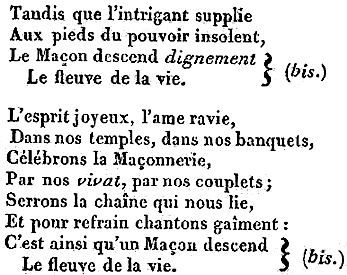 Tandis que l'intrigant supplie
Aux pieds du pouvoir insolent,
Le Maçon descend dignement
Le fleuve de la vie. (bis.)
L'esprit joyeux, l'ame ravie,
Dans nos temples, dans nos banquets,
Célébrons la Maçonnerie,
Par nos vivat, par nos couplets;
Serrons la chaîne qui nous lie,
Et pour refrain chantons gaîment :
C'est ainsi qu'un Maçon descend
Le fleuve de la vie. (bis.)